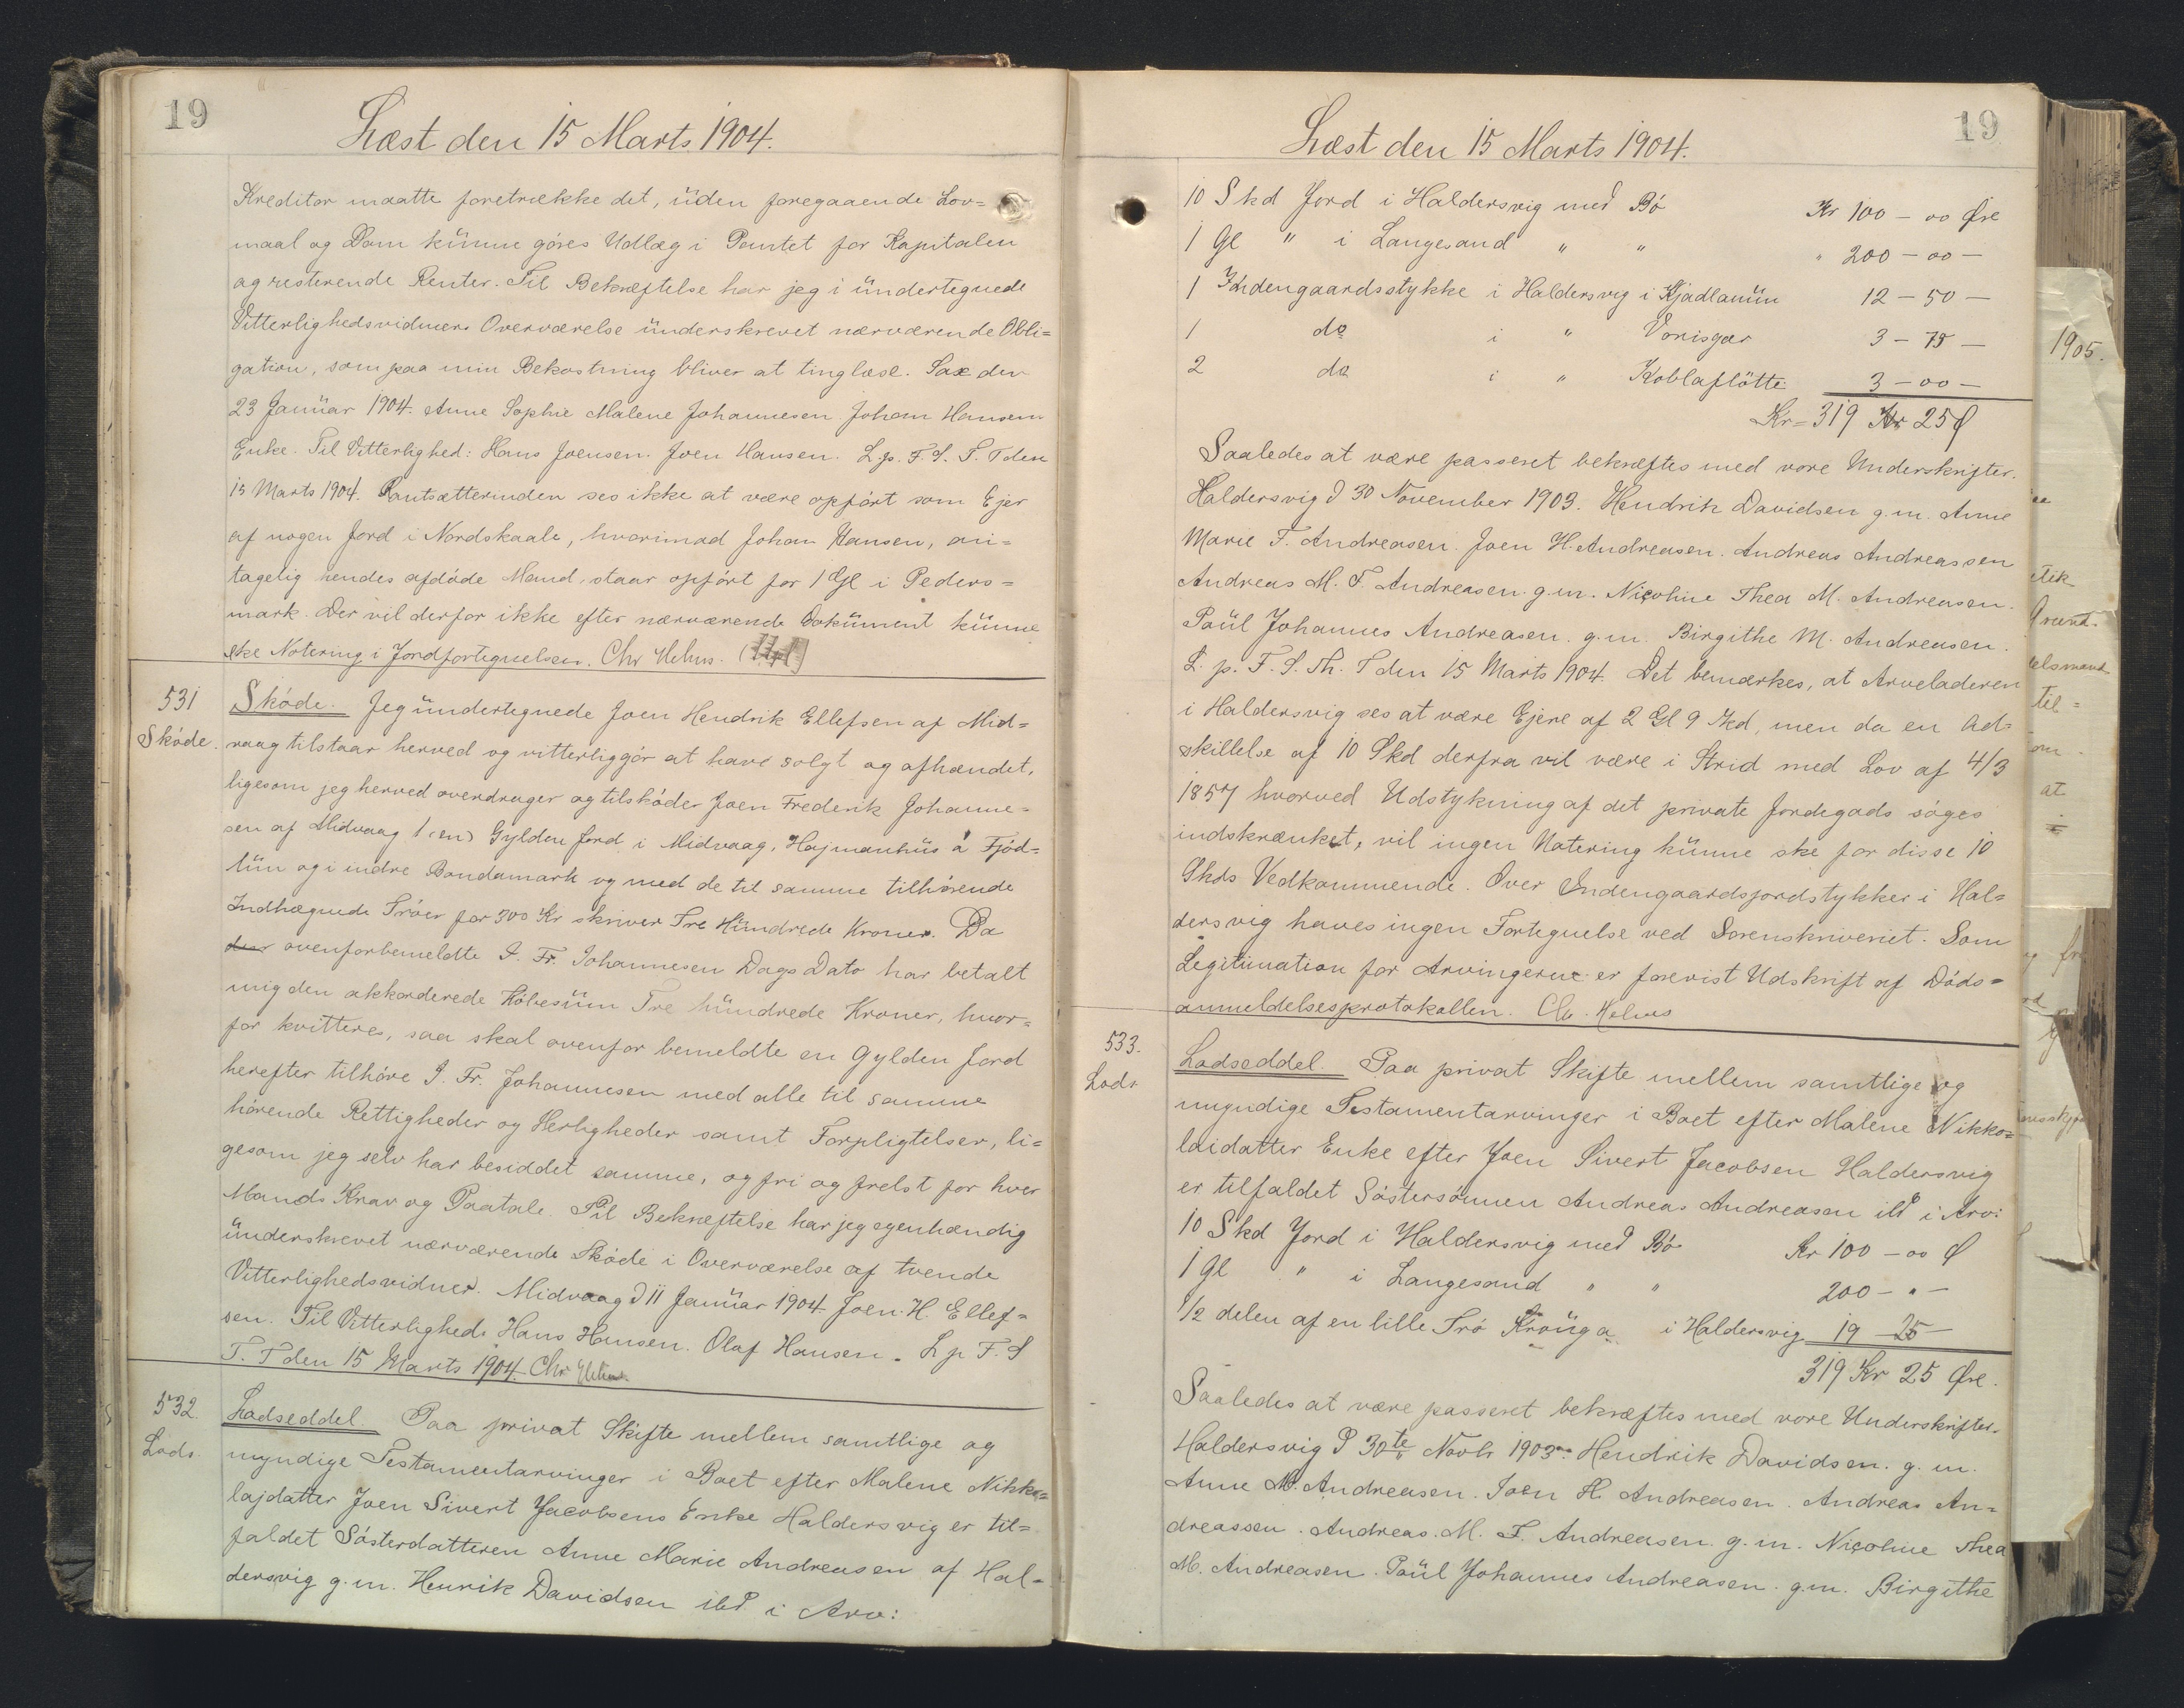 19
Læst den 15 Marts 1904.
Kreditor maatte foretrække det, üden foregaaende Lov=
maal og Dom künne göres Udlæg i Pantet for Kapitalen
og resterende Renter. Til Bekræftelse har jeg i ündertegnede
Vitterlighedsvidners Overværelse ünderskrevet nærværende Obli=
gation, som paa min Bekostning bliver at tinglæse. Saxe den
23 Januar 1904. Anne Sophie Malene Johannesen Johan Hansens
Enke. Til Vitterlighed: Hans Joensen. Joen Hansen. L. p. F. S. T. T den
15 Marts 1904. Pantsætterinden ses ikke at være opfört som Ejer
af nogen Jord i Nordskaale, hvorimod Johan Hansen, an=
tagelig hendes afdöde Mand, staar opfört for 1 Gl i Peders=
mark. Der vil derfor ikke efter nærværende Dokument künne
ske Notering i Jordfortegnelsen. Chr Hehus.
531
Sköde.
Sköde. Jeg ündertegnede Joen Hendrik Ellefsen af Mid=
vaag tilstaar herved og vitterliggör at have solgt og afhændet,
ligesom jeg herved overdrager og tilsköder Joen Frederik Johanne=
sen af Midvaag 1 (en) Gylden Jord i Midvaag, Hajmanhüs á Fjöd=
lün og i indre Bondamark og med de til samme tilhörende
Indhægnede Tröer for 300 Kr skriver Tre Hündrede Kroner. Da
der ovenforbemeldte J. Fr. Johannesen Dags Dato har betalt
mig den akkorderede Köbesüm Tre hündrede Kroner, hvor=
for kvitteres, saa skal ovenfor bemeldte en Gylden Jord
herefter tilhöre J. Fr. Johannesen med alle til samme
hörende Rettigheder og Herligheder samt Forpligtelser, li=
gesom jeg selv har besiddet samme, og fri og frelst for hver
Mands Krav og Paatale. Til Bekræftelse har jeg egenhændig
ünderskrevet nærværende Sköde i Overværelse af tvende
Vitterlighedsvidner. Midvaag d 11 Januar 1904 Joen H. Ellef=
sen. Til Vitterlighed: Hans Hansen. Olaf Hansen. L p F. S
T. T den 15 Marts 1904 Chr
532.
Lods.
Lodseddel. Paa privat Skifte mellem samtlige og
myndige Testamentarvinger i Boet efter Malene Nikko=
lajdatter Joen Sivert Jacobsens Enke Haldersvig er til=
faldet Sösterdatteren Anne Marie Andreasen af Hal=
dersvig g. m. Henrik Davidsen ibd i Arv:
19
Læst den 15 Marts 1904.
10 Skd Jord i Haldersvig med Bö Kr 100 — 00 Øre
1 Gl " i Langesand " " " 200 — 00 —
1 Indengaardsstykke i Haldersvig i Kjadlanün 12 — 50 —
1 do i " Vonisgar 3 — 75 —
2 do i " Koblaflötte 3 — 00 —
Kr = 319 Kr 25 Ø
Saaledes at være passeret bekræftes med vore Underskrifter.
Haldersvig d 30 November 1903. Hendrik Davidsen g. m. Anne
Marie F. Andreasen. Joen H. Andreasen. Andreas Andreassen
Andreas M. F. Andreasen. g. m. Nicoline Thea M. Andreasen.
Paül Johannes Andreasen. g. m. Birgithe M. Andreasen.
L. p. F. S. Th. T den 15 Marts 1904. Det bemærkes, at Arveladeren
i Haldersvig ses at være Ejere af 2 Gl 9 Skd, men da en Ad=
skillelse af 10 Skd derfra vil være i Strid med Lov af 4/3
1857 hvorved Udstykning af det private Jordegods söges
indskrænket, vil ingen Notering künne ske for disse 10
Skds Vedkommende. Over Indengaardsjordstykker i Hal=
dersvig haves ingen Fortegnelse ved Sorenskriveriet. Som
Legitimation for Arvingerne er forevist Udskrift af Döds=
anmeldelsesprotokollen. Chr. Hehus
533.
Lods.
Lodseddel. Paa privat Skifte mellem samtlige og
myndige Testamentarvinger i Boet efter Malene Nikko=
laidatter Enke efter Joen Sivert Jacobsen Haldersvig
er tilfaldet Söstersönnen Andreas Andreasen ibd i Arv:
10 Skd Jord i Haldersvig med Bö Kr 100 — 00 Ø
1 Gl " i Langesand " " 200 — " —
1/2 delen af en lille Trö Króüga i Haldersvig 19 25 —
319 Kr 25 Øre.
Saaledes at være passeret bekræftes med vore Underskrifter.
Haldersvig d 30te Novbr 1903. Hendrik Davidsen. g. m.
Anne M. Andreasen. Joen H. Andreasen. Andreas An=
dreassen. Andreas. M. F. Andreasen. g. m. Nicoline Thea
M. Andreasen. Paül Johannes Andreasen. g.m. Birgithe
1905.